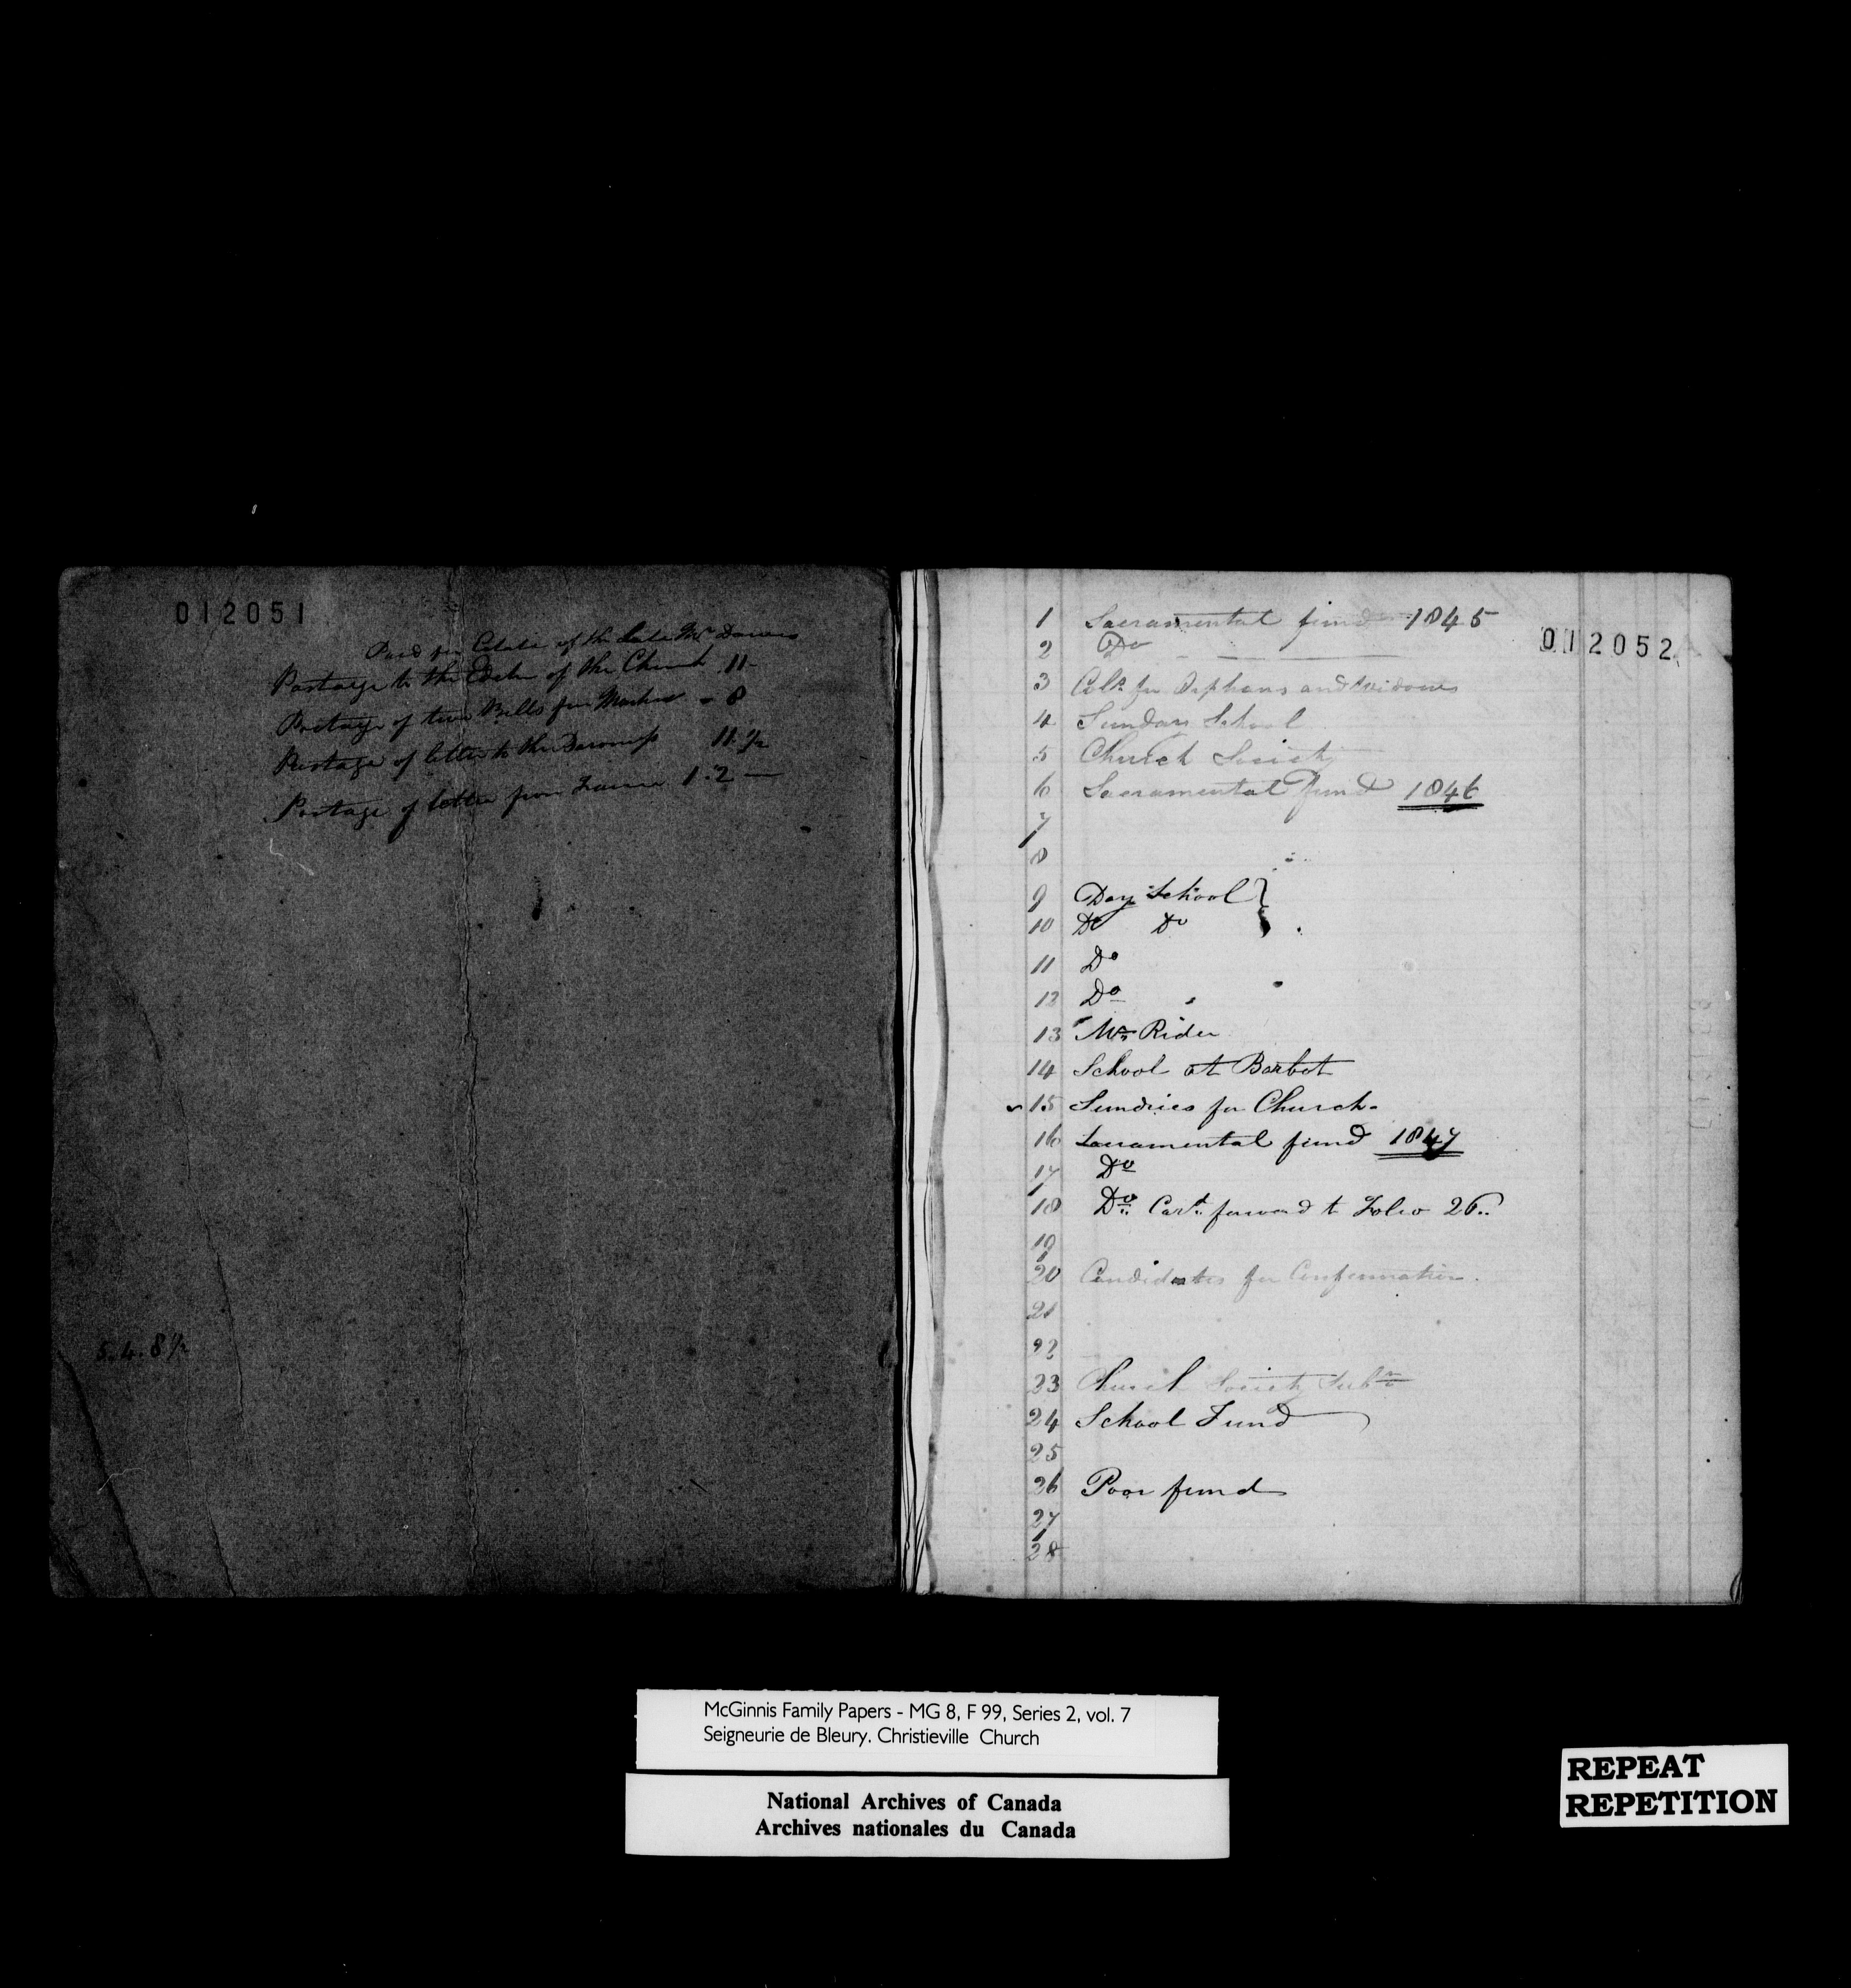 012051
Paid for Estate of the late Mr Dawes
Postage to the Editor of the Church 11-
Postage of two Bills for - 8
Postage of letter to the 11 1/2
Postage of letter from France 1.2 —
5.4.8 1/2
012052
1 Sacramental fund 1845
2 Do
3 Coln for Orphans and Widows
4 Sunday School
5 Church Society
6 Sacramental fund 1846
7
8
9 Day School }
10 Do Do
11 Do
12 Do "
13 Mr Rider
14 School at Barbot
15 Sundries for Church
16 Sacramental fund 1847
17 Do
18 Do Card forward to Folio 26
19
20 Candidates for Confirmation.
21
22
23 Church Society Subn
24 School Fund
25
26 Poor fund
27
28
McGinnis Family Papers - MG 8, F 99, Series 2, vol. 7
Seigneurie de Bleury. Christieville Church
National Archives of Canada
Archives nationales du Canada
REPEAT
REPETITION